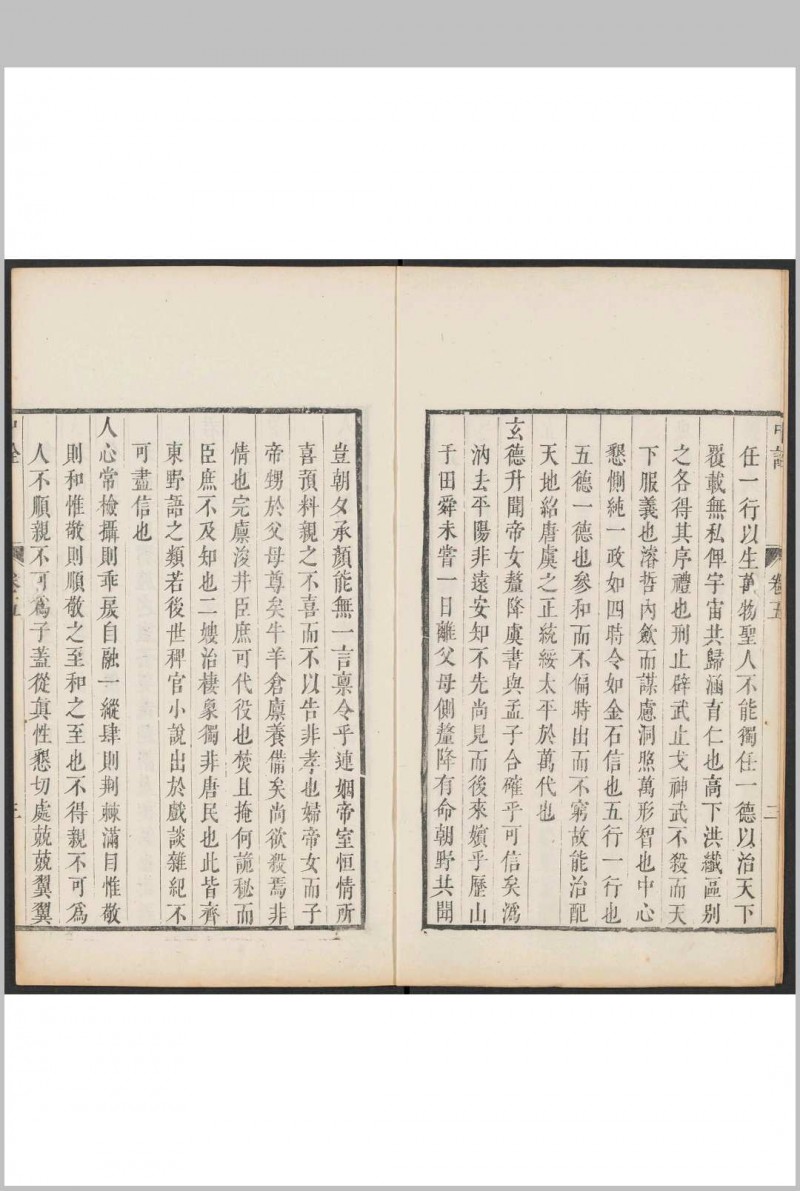 中詮 卷五 二
任一行以生萬物聖人不能獨任一德以治天下
覆載無私俾宇宙共歸涵育仁也高下洪纖區別
之各得其序禮也刑止辟武止戈神武不殺而天
下服義也濬哲內歛而謀慮洞照萬形智也中心
懇惻純一政如四時令如金石信也五行一行也
五德一德也參和而不偏時出而不窮故能治配
天地紹唐虞之正統綏太平於萬代也
玄德升聞帝女釐降虞書與孟子合確乎可信矣溈
汭去平陽非遠安知不先尚見而後來嬪乎歷山
于田舜未嘗一日離父母側釐降有命朝野共聞
豈朝夕承顏能無一言禀令乎連姻帝室恒情所
喜預料親之不喜而不以告非孝也婦帝女而子
帝甥於父母尊矣牛羊倉廩養備矣尚欲殺焉非
情也完廩浚井臣庶可代役也焚且掩何詭秘而
臣庶不及知也二嫂治棲象獨非唐民也此皆齊
東野語之類若後世稗官小說出於戲談雜紀不
可盡信也
人心常檢攝則乖戾自融一縱肆則荆棘滿目惟敬
則和惟敬則順敬之至和之至也不得親不可為
人不順親不可為子蓋從真性懇切處兢兢翼翼
中詮 卷五 三